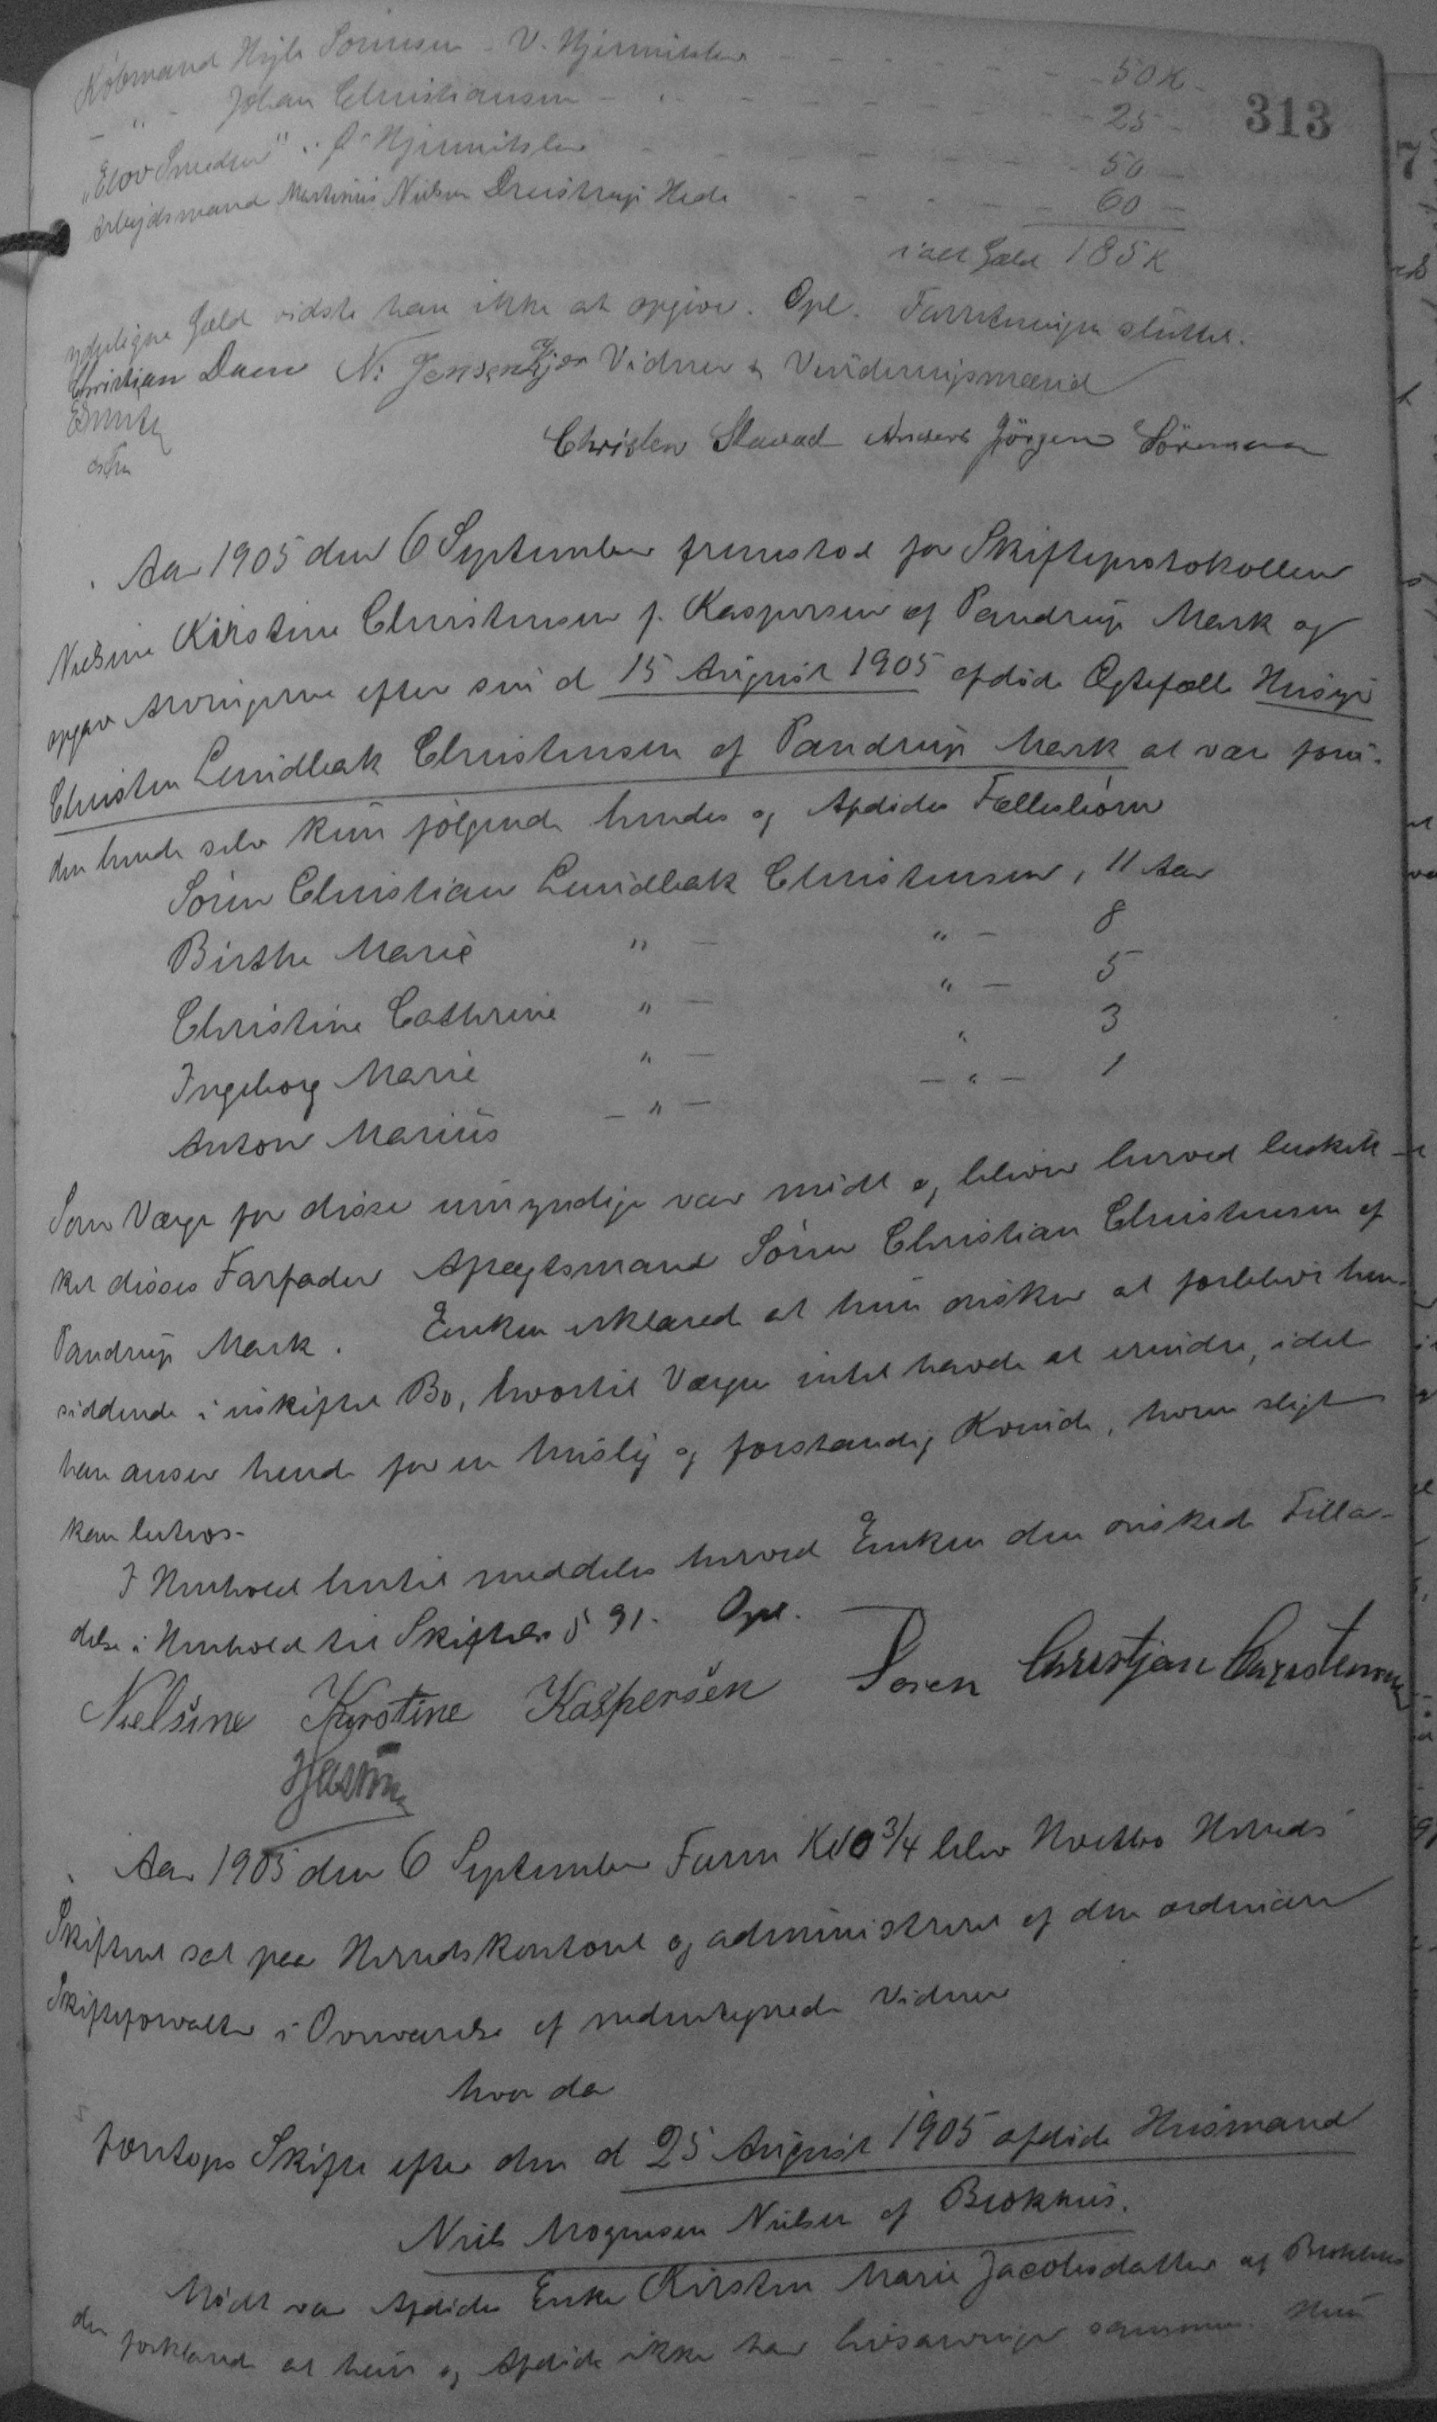 Købmand Niels Sørensen - V. Hjermitslev - - - - - - 50 K -
- " - Johan Christiansen - " - - - - - - 25 -
313
"Elov Smeden" " Ø Hjermitslev - - - - - - 50 -
Arbejdsmand Martinus Nielsen Drøstrup Hede - - - - - 60 -
i alt Gæld 185 K
yderligere Gæld vidste han ikke at opgive. Opl. Forretningen sluttet.
Christian Daen N. Jensen Kjær Vidner & Vurderingsmænd
Christen Slavad Anders Jörgen Sörensen
Aar 1905 den 6 September fremstod for Skifteprotokollen
Nielsine Kirstine Christensen f. Kaspersen af Pandrup Mark og
opgav Arvingerne efter sin d 15 August 1905 afdøde Ægtefælle Husejer
Christen Lundbak Christensen af Pandrup Mark at være foru-
den hende selv kun følgende hendes og Afdødes Fællesbørn
Sören Christian Lundbak Christensen, 11 Aar
Birthe Marie " - " - 8
Christine Cathrine " - " - 5
Ingeborg Marie " - " 3
Anton Marius - " - - " - 1
Som Værge for disse umyndige var mødt og bliver herved beskik-
ket disses Farfader Aftægtsmand Sören Christian Christensen af
Pandrup Mark. Enken erklærede at hun ønsker at forblive hen-
siddende i uskiftet Bo, hvortil Værgen intet havde at erindre, idet
han anser hende for en huslig og forstandig Kvinde, hvem sligt
kan betros -
I Henhold hertil meddeles herved Enken den ønskede Tilla-
delse i Henhold til Skiftel. § 91. Opl.
Nielsine Kirstine Kaspersen Søren Christjan Christensen
Aar 1905 den 6 September Form Kl 10 3/4 blev Hvetbo Herreds
Skifteret sat paa Herredskontoret og administreret af den ordinære
Skifteforvalter i Overværelse af nedentegnede Vidner
hvor da
foretoges Skifte efter den d 25 August 1905 afdøde Husmand
Niels Mogensen Nielsen af Blokhus.
Mødt var Afdødes Enke Kirsten Marie Jacobsdatter af Blokhus
der forklarede at hun og Afdøde ikke har Livsarvinger sammen. Hun